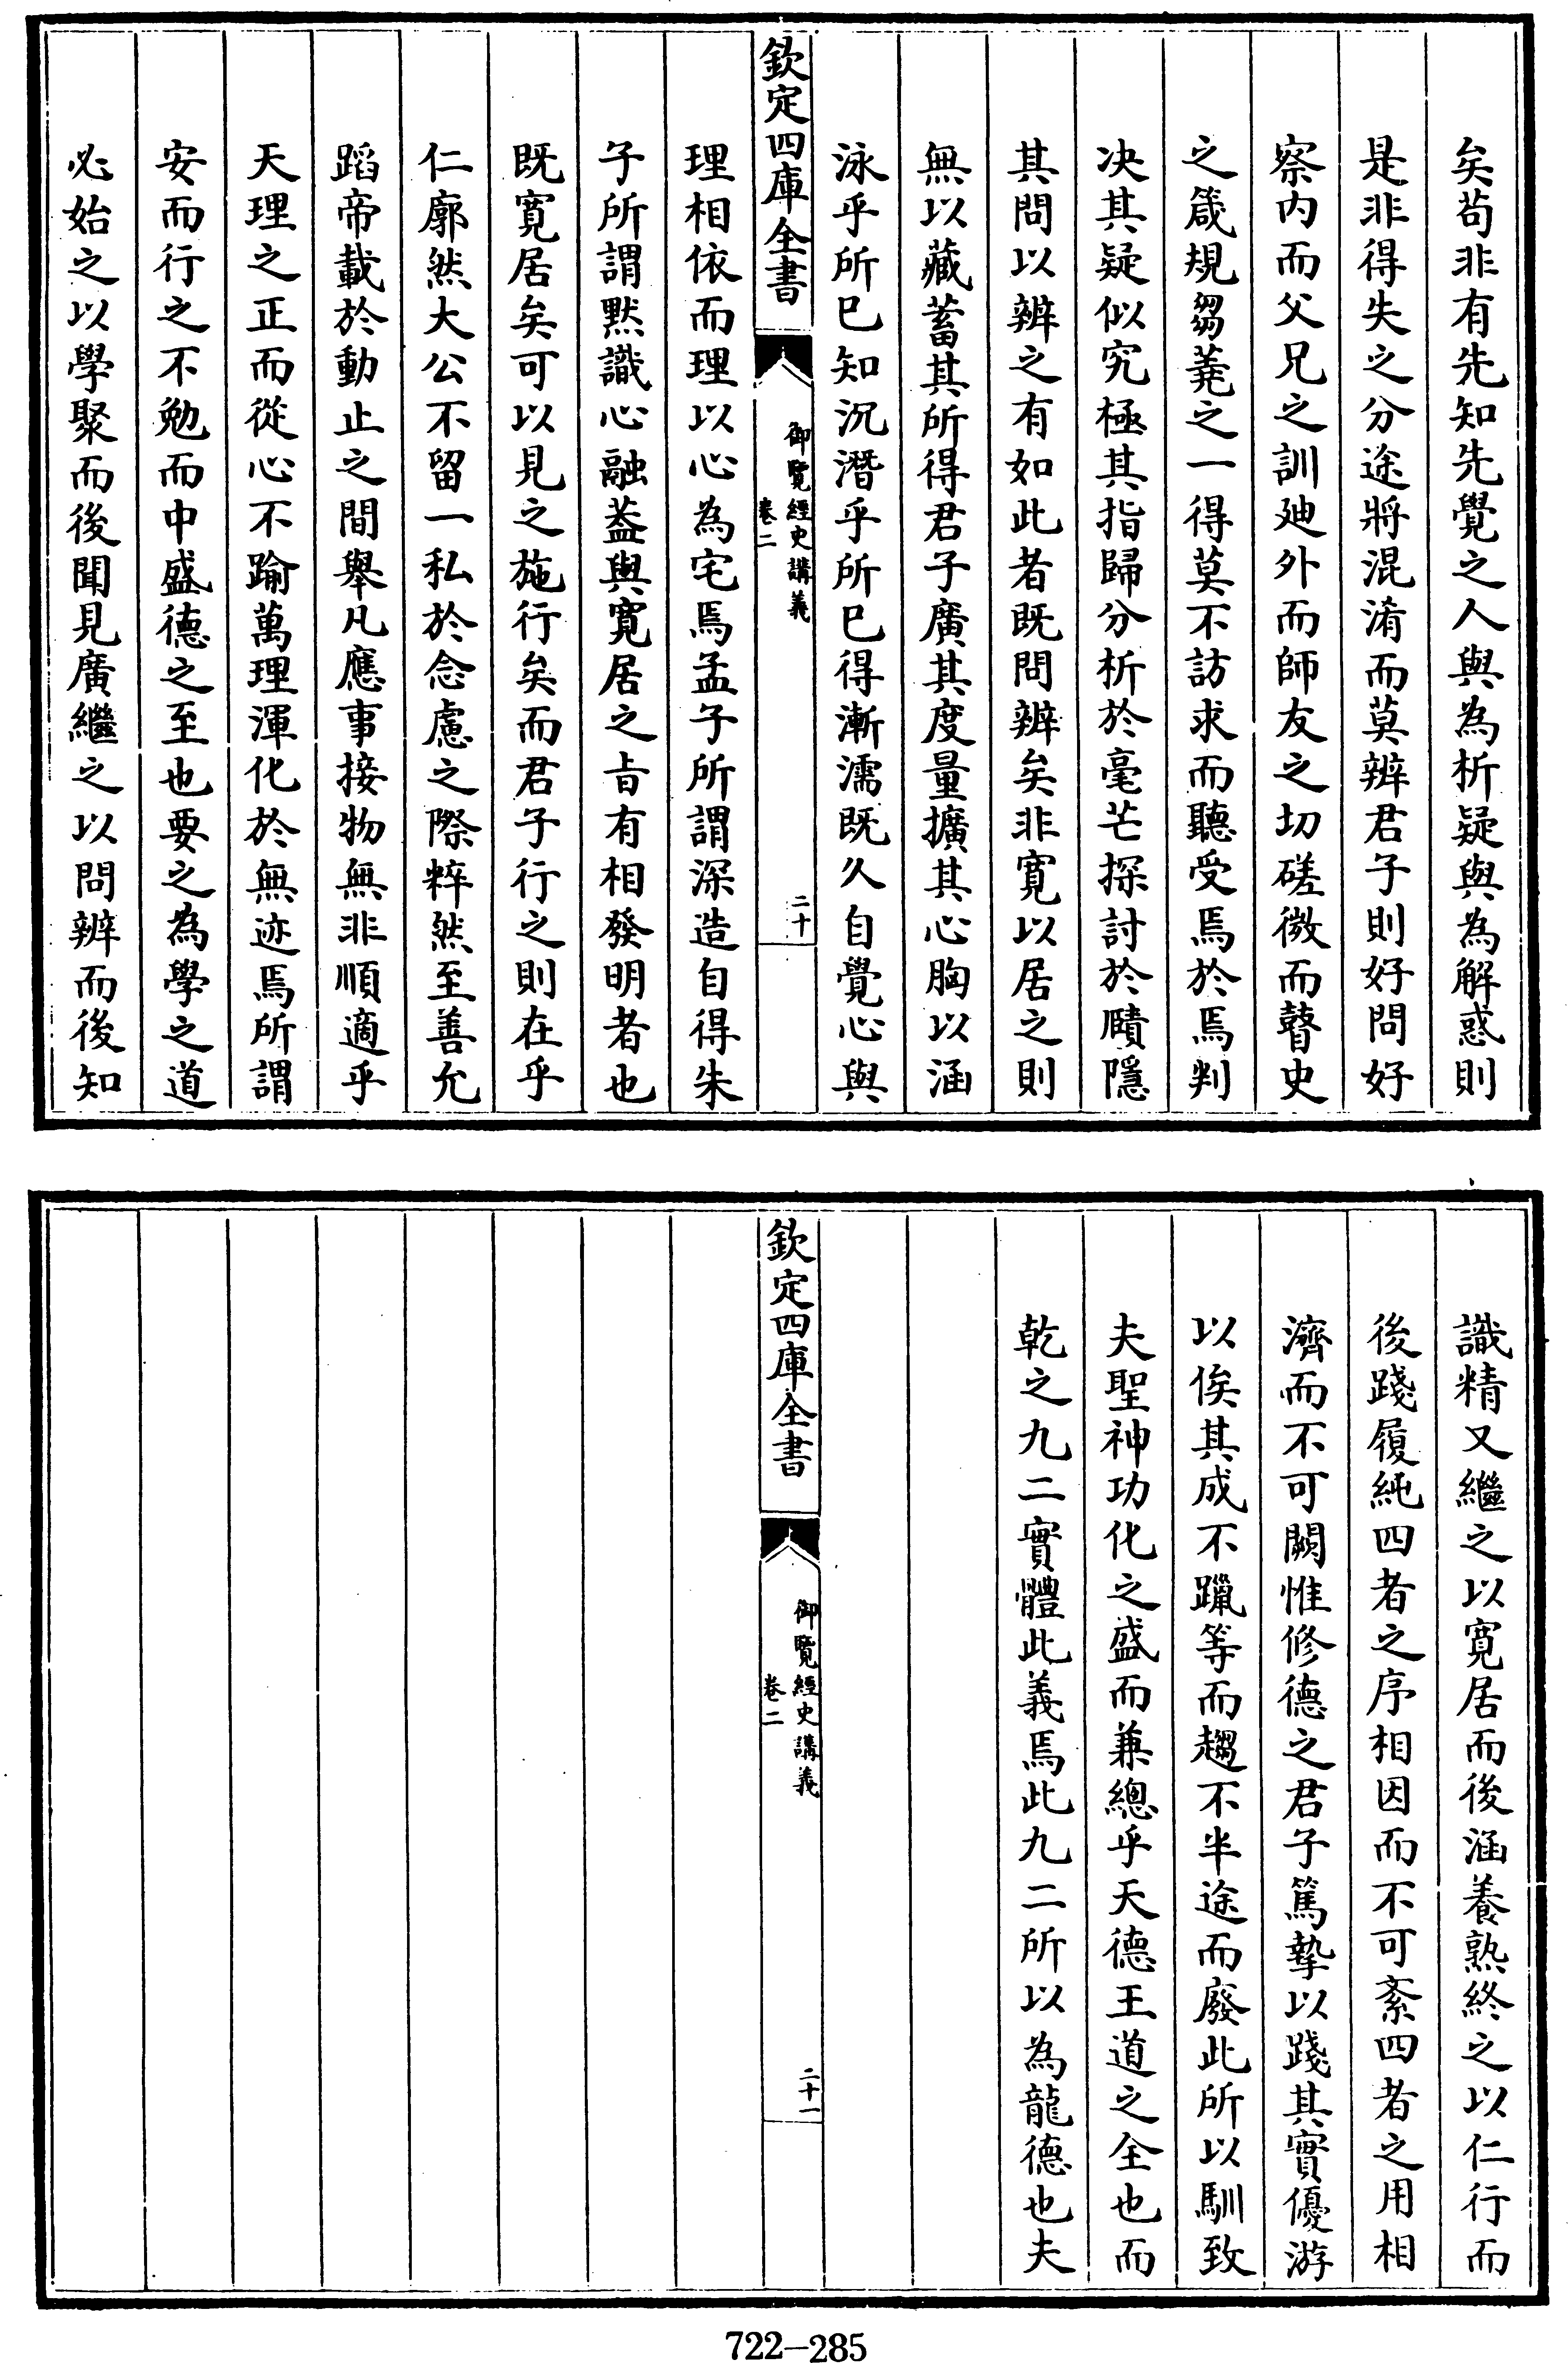 矣苟非有先知先覺之人與為析疑與為解惑則
是非得失之分途將混淆而莫辨君子則好問好
察内而父兄之訓廸外而師友之切磋微而瞽史
之箴規芻蕘之一得莫不訪求而聽受焉於焉判
决其疑似究極其指歸分析於毫芒探討於賾隱
其問以辨之有如此者既問辨矣非寛以居之則
無以藏蓄其所得君子廣其度量擴其心胸以涵
泳乎所已知沉潛乎所已得漸濡既久自覺心與
欽定四庫全書
御覽經史講義
卷二
二十
理相依而理以心為宅焉孟子所謂深造自得朱
子所謂黙識心融葢與寛居之㫖有相發明者也
既寛居矣可以見之施行矣而君子行之則在乎
仁廓然大公不留一私於念慮之際粹然至善允
蹈帝載於動止之間舉凡應事接物無非順適乎
天理之正而從心不踰萬理渾化於無迹焉所謂
安而行之不勉而中盛德之至也要之為學之道
必始之以學聚而後聞見廣繼之以問辨而後知
識精又繼之以寛居而後涵養熟終之以仁行而
後踐履純四者之序相因而不可紊四者之用相
濟而不可闕惟修德之君子篤摯以踐其實優游
以俟其成不躐等而趨不半途而廢此所以馴致
夫聖神功化之盛而兼總乎天德王道之全也而
乾之九二實體此義焉此九二所以為龍德也夫
欽定四庫全書
御覽經史講義
卷二
二十一
722-285